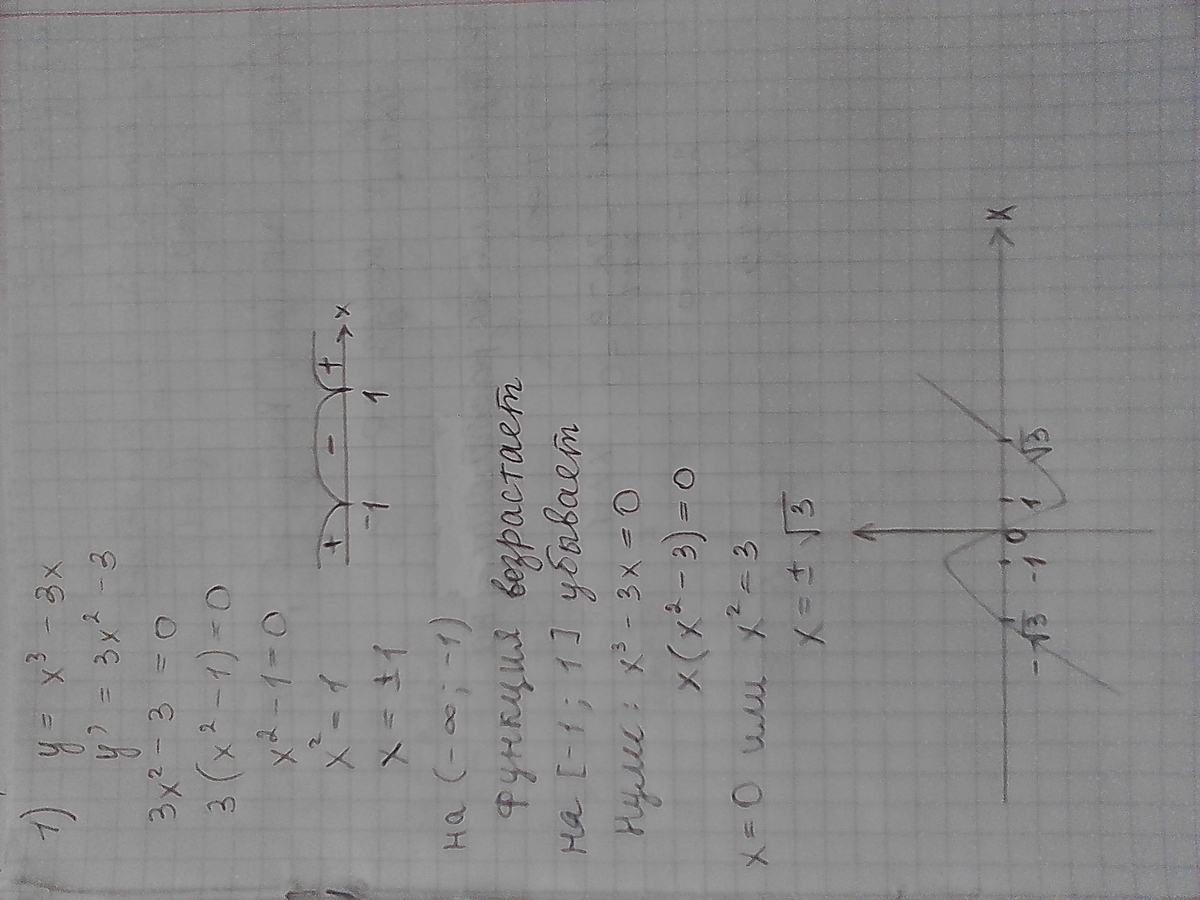 1) y = x³ - 3x
y' = 3x² - 3
3x² - 3 = 0
3(x² - 1) = 0
x² - 1 = 0
x² = 1
x = ±1
+ - + x
-1 1
на (-∞; -1)
функция возрастает
на [-1; 1] убывает
Нули: x³ - 3x = 0
x(x² - 3) = 0
x = 0 или x² = 3
x = ± √3
-√3 -1 0 1 √3 x